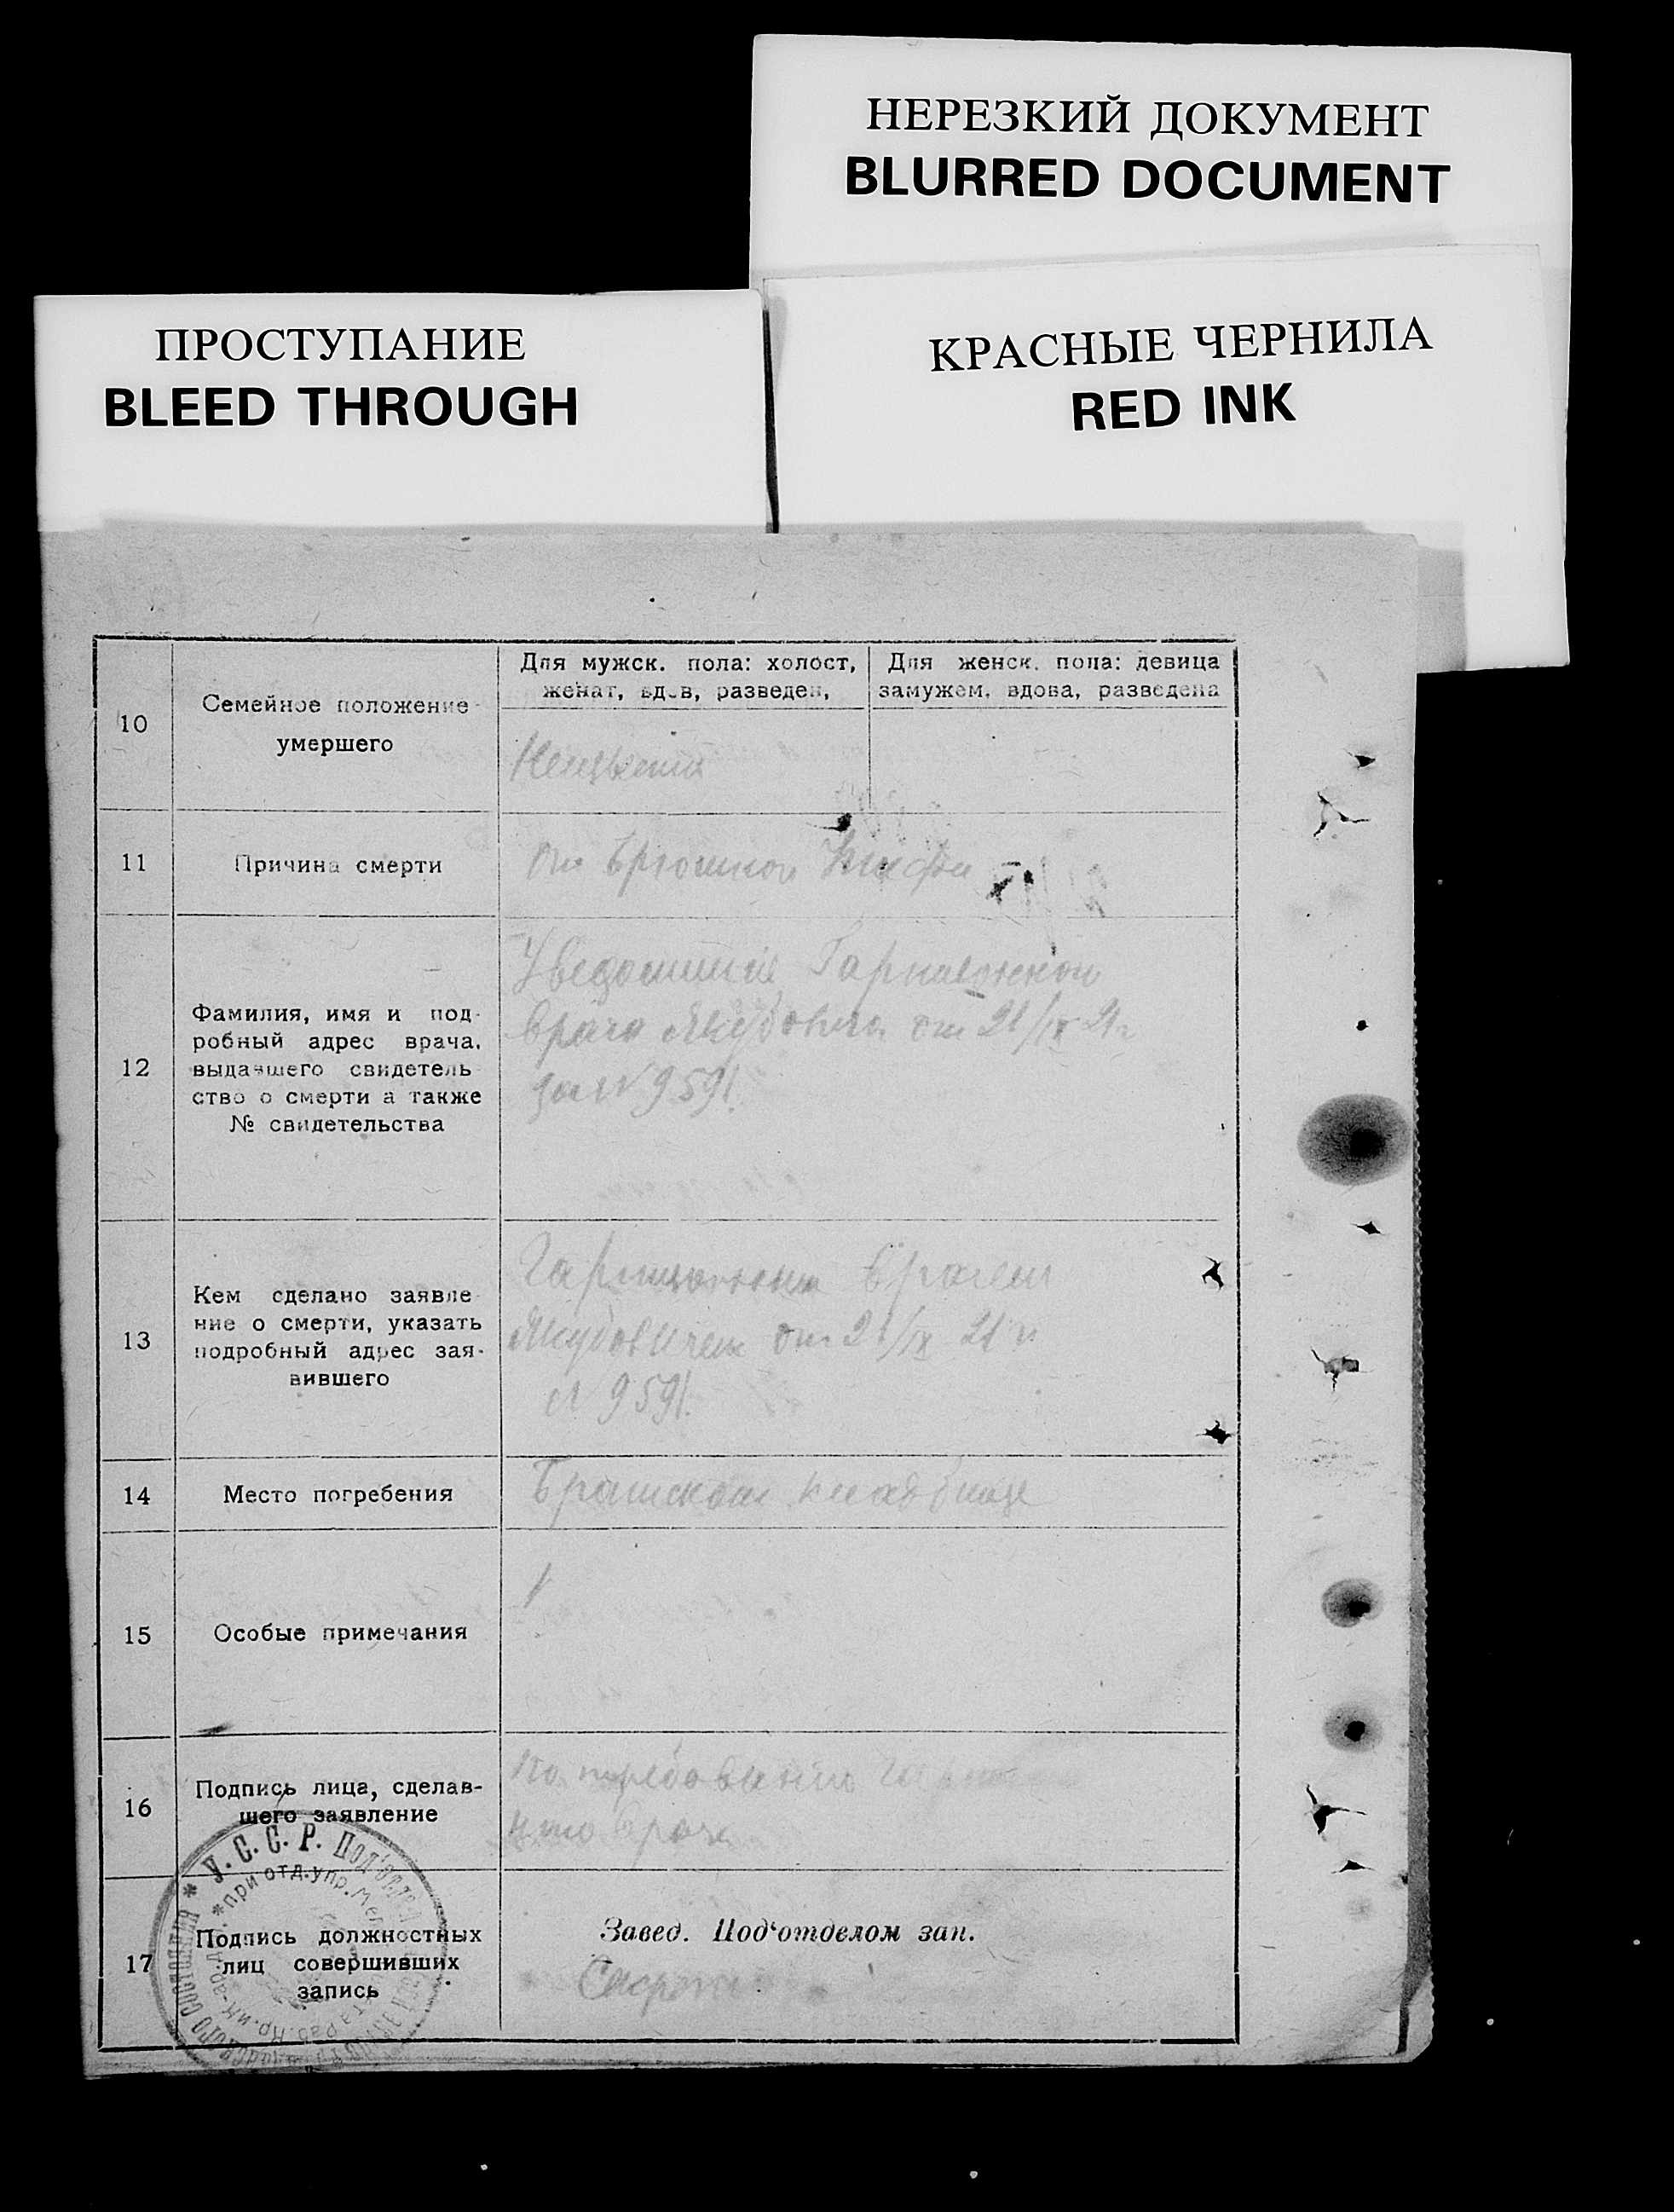 НЕРЕЗКИЙ ДОКУМЕНТ
BLURRED DOCUMENT
КРАСНЫЕ ЧЕРНИЛА
RED INK
ПРОСТУПАНИЕ
BLEED THROUGH
10
Семейное положение
умершего
Для мужск. пола: холост,
женат, вдов, разведен,
Для женск. пола: девица
замужем, вдова, разведена
11
Причина смерти
От брюшной
12
Фамилия, имя и под-
робный адрес врача,
выдавшего свидетель
ство о смерти а также
№ свидетельства
врача Якубовича от 21/IX 21 г
за № 9591.
13
Кем сделано заявле
ние о смерти, указать
подробный адрес зая-
вившего
врачем
Якубовичем от 21/IX 21 г
№ 9591.
14
Место погребения
Братском кладбище
15
Особые примечания
16
Подпись лица, сделав-
шего заявление
По требованию
врача
17
Подпись должностных
лиц совершивших
запись
Завед. Под'отделом зап.
У. С. С. Р. Под'отдел
при отд. упр.